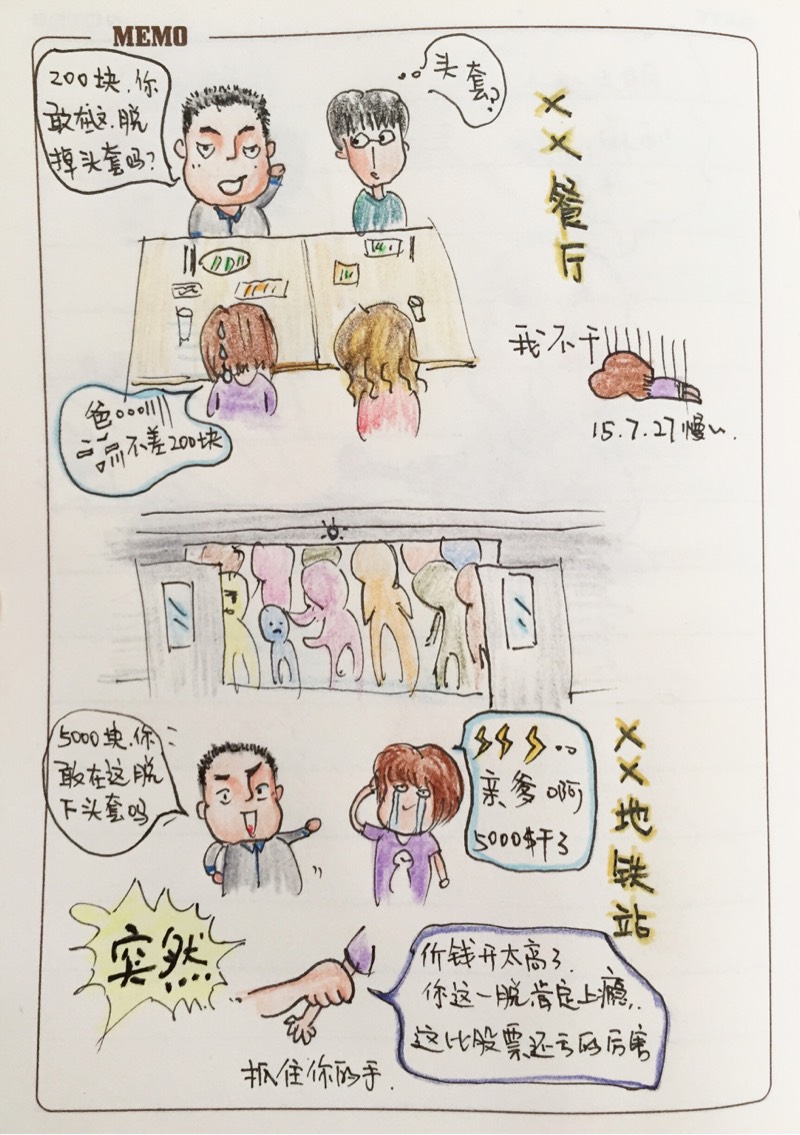 MEMO
200块，你
敢在这，脱
掉头套吗？
头套？
××餐厅
爸
不差200块
我不干
15.7.27慢
5000块，你
敢在这脱
下头套吗
亲爹啊
5000干了
××地铁站
突然
价钱开太高了，
你这一脱肯定上瘾，
这比股票还亏的厉害
抓住你的手.